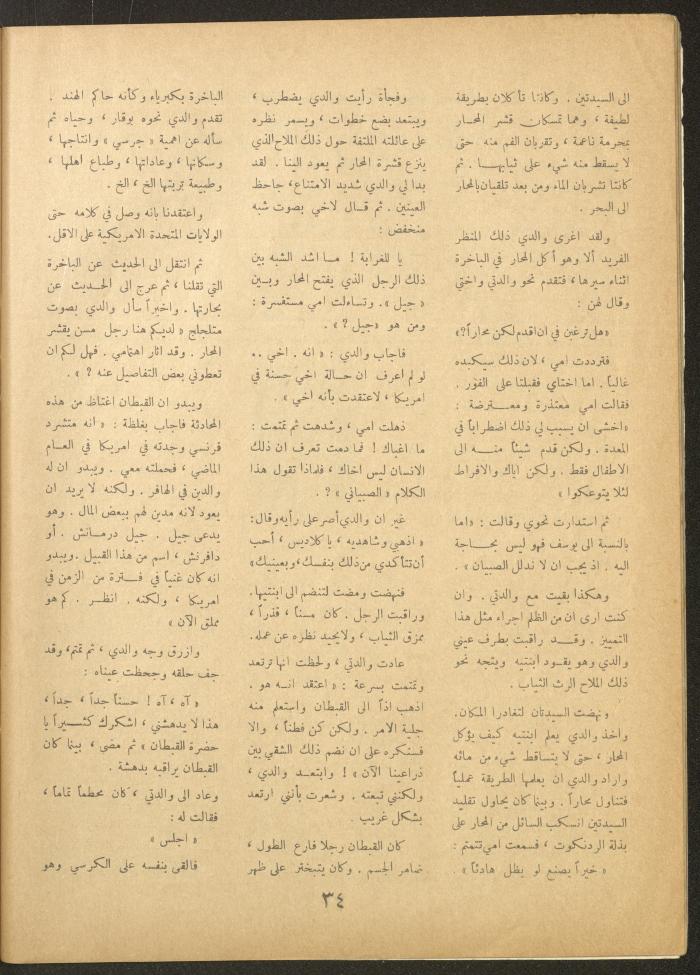 الى السيدتين . وكانتا تأكلان بطريقة
لطيفة ، وهما تمسكان قشر المحار
بمحرمة ناعمة ، وتقربان الفم منه حتى
لا يسقط منه شيء على ثيابهما . ثم
كانتا تشربان الماء ومن بعد تلقيان بالمحار
الى البحر .
ولقد اغرى والدي ذلك المنظر
الفريد ألا وهو أكل المحار في الباخرة
اثناء سيرها ، فتقدم نحو والدتي واختي
وقال لهن :
«هل ترغبن في ان اقدم لكن محاراً؟»
فترددت امي ، لان ذلك سيكبده
غالباً . اما اختاي فقبلتا على الفور .
فقالت امي معتذرة ومعترضة :
«اخشى ان يسبب لي ذلك اضطراباً في
المعدة . ولكن قدم شيئاً منه الى
الاطفال فقط . ولكن اياك والافراط
لئلا يتوعكوا »
ثم استدارت نحوي وقالت : «اما
بالنسبة الى يوسف فهو ليس بحاجة
اليه . اذ يجب ان لا ندلل الصبيان » .
وهكذا بقيت مع والدتي . وان
كنت ارى ان من الظلم اجراء مثل هذا
التمييز . وقد راقبت بطرف عيني
والدي وهو يقود ابنتيه ويتجه نحو
ذلك الملاح الرث الثياب .
ونهضت السيدتان لتغادرا المكان .
واخذ والدي يعلم ابنتيه كيف يؤكل
المحار ، حتى لا يتساقط شيء من مائه
واراد والدي ان يعلمها الطريقة عملياً
فتناول محاراً . وبينما كان يحاول تقليد
السيدتين انسكب السائل من المحار على
بذلة الردنكوت ، فسمعت امي تتمتم :
« خيراً يصنع لو يظل هادئاً » .
وفجأة رأيت والدي يضطرب ،
ويبتعد بضع خطوات ، ويسمر نظره
على عائلته الملتفة حول ذلك الملاح الذي
ينزع قشرة المحار ثم يعود الينا . لقد
بدا لي والدي شديد الامتناع ، جاحظ
العينين . ثم قال لاخي بصوت شبه
منخفض :
يا للغرابة ! ما اشد الشبه بين
ذلك الرجل الذي يفتح المحار وبين
« جيل » . وتساءلت امي مستفسرة :
ومن هو «جيل ؟ » .
فاجاب والدي : « انه . اخي ..
لو لم اعرف ان حالة اخي حسنة في
امريكا ، لاعتقدت بأنه اخي » .
ذهلت امي ، وشدهت ثم تمتمت :
ما اغباك ! فما دمت تعرف ان ذلك
الانسان ليس اخاك ، فلماذا تقول هذا
الكلام « الصبياني » ? .
غير ان والدي أصر على رأيه وقال :
« اذهبي وشاهديه ، يا كلاديس ، أحب
أن تتأكدي من ذلك بنفسك ، وبعينيك»
فنهضت ومضت لتنضم الى ابنتيها .
وراقبت الرجل . كان مسناً ، قذراً ،
ممزق الثياب ، ولا يحيد نظره عن عمله .
عادت والدتي ، ولحظت انها ترتعد
وتمتمت بسرعة : « اعتقد انه هو .
اذهب اذاً الى القبطان واستعلم منه
جلية الامر . ولكن كن فطناً ، والا
فستكره على ان نضم ذلك الشقي بين
ذراعينا الآن » ! وابتعد والدي ،
ولكنني تبعته . وشعرت بأنني ارتعد
بشكل غريب .
كان القبطان رجلا فارع الطول ،
ضامر الجسم . وكان يتبختر على ظهر
الباخرة بكبرياء وكأنه حاكم الهند .
تقدم والدي نحوه بوقار ، وحياه ثم
سأله عن اهمية « جرسي » وانتاجها ،
وسكانها ، وعاداتها ، وطباع اهلها ،
وطبيعة تربتها الخ ، الخ .
واعتقدنا بانه وصل في كلامه حتى
الولايات المتحدة الامريكية على الاقل.
ثم انتقل الى الحديث عن الباخرة
التي تقلنا ، ثم عرج الى الحديث عن
بحارتها . واخيراً سأل والدي بصوت
متلجلج « لديكم هنا رجل مسن يقشر
المحار . وقد اثار اهتمامي . فهل لكم ان
تعطوني بعض التفاصيل عنه ? » .
ويبدو ان القبطان اغتاظ من هذه
المحادثة فاجاب بغلظة : « أنه متشرد
فرنسي وجدته في امريكا في العام
الماضي ، فحملته معي . ويبدو ان له
والدين في الهافر . ولكنه لا يريد ان
يعود لانه مدين لهم ببعض المال . وهو
يدعى جيل . جيل درمانش . أو
دافرنش ، اسم من هذا القبيل . ويبدو
انه كان غنياً في فترة من الزمن في
امريكا ، ولكنه . انظر . كم هو
مملق الآن »
وازرق وجه والدي ، ثم تمتم ، وقد
جف حلقه وجحظت عيناه :
« آه ، آه ! حسناً جداً ، جداً ،
هذا لا يدهشني ، اشكرك كثيراً يا
حضرة القبطان » ثم مضى ، بينما كان
القبطان يراقبه بدهشة .
وعاد الى والدتي ، كان محطماً تماماً ،
فقالت له :
« اجلس »
فالقى بنفسه على الكرسي وهو
٣٤